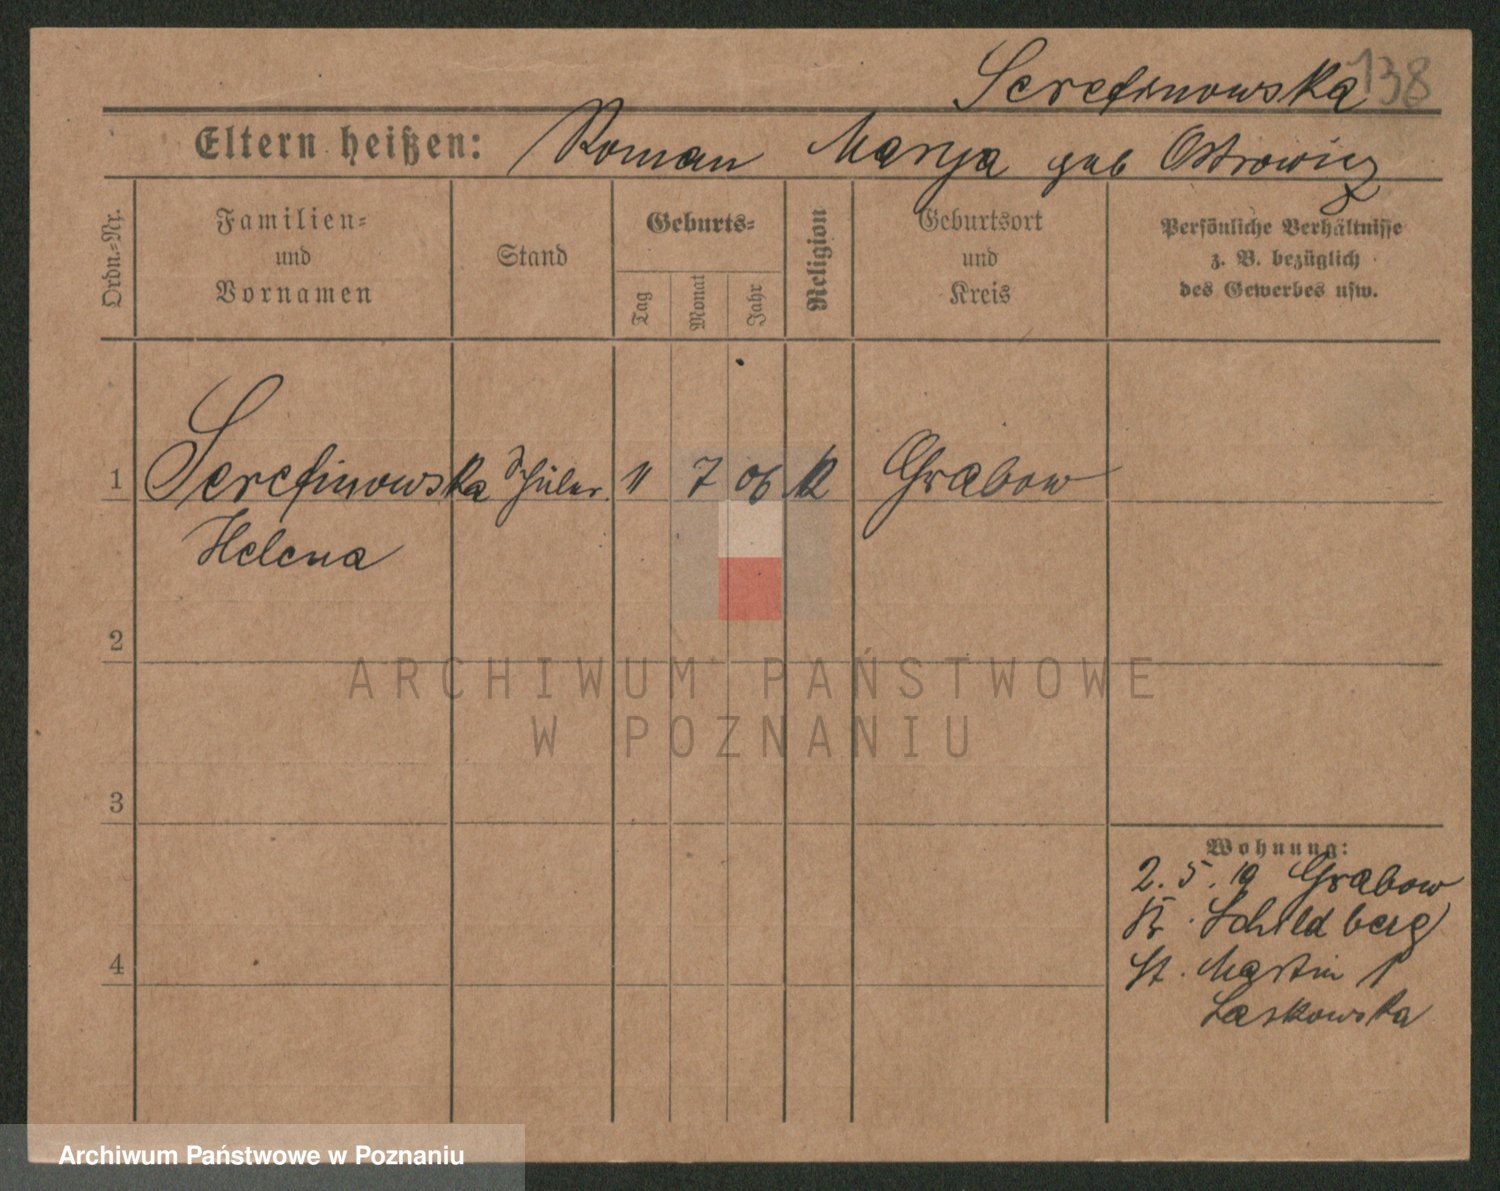 Serefinowska 138
Eltern heißen: Roman Marya geb Ostrowicz
Ordn.-Nr.
Familien-
und
Vornamen
Stand
Geburts-
Tag
Monat
Jahr
Religion
Geburtsort
und
Kreis
Persönliche Verhältnisse
z. B. bezüglich
des Gewerbes usw.
1 Serefinowska Schüler. 11 7 06 K Grabow
Helena
2
3
4
Wohnung:
2. 5. 19 Grabow
Kr. Schildberg
St. Martin
Laskowska
ARCHIWUM PAŃSTWOWE
W POZNANIU
Archiwum Państwowe w Poznaniu